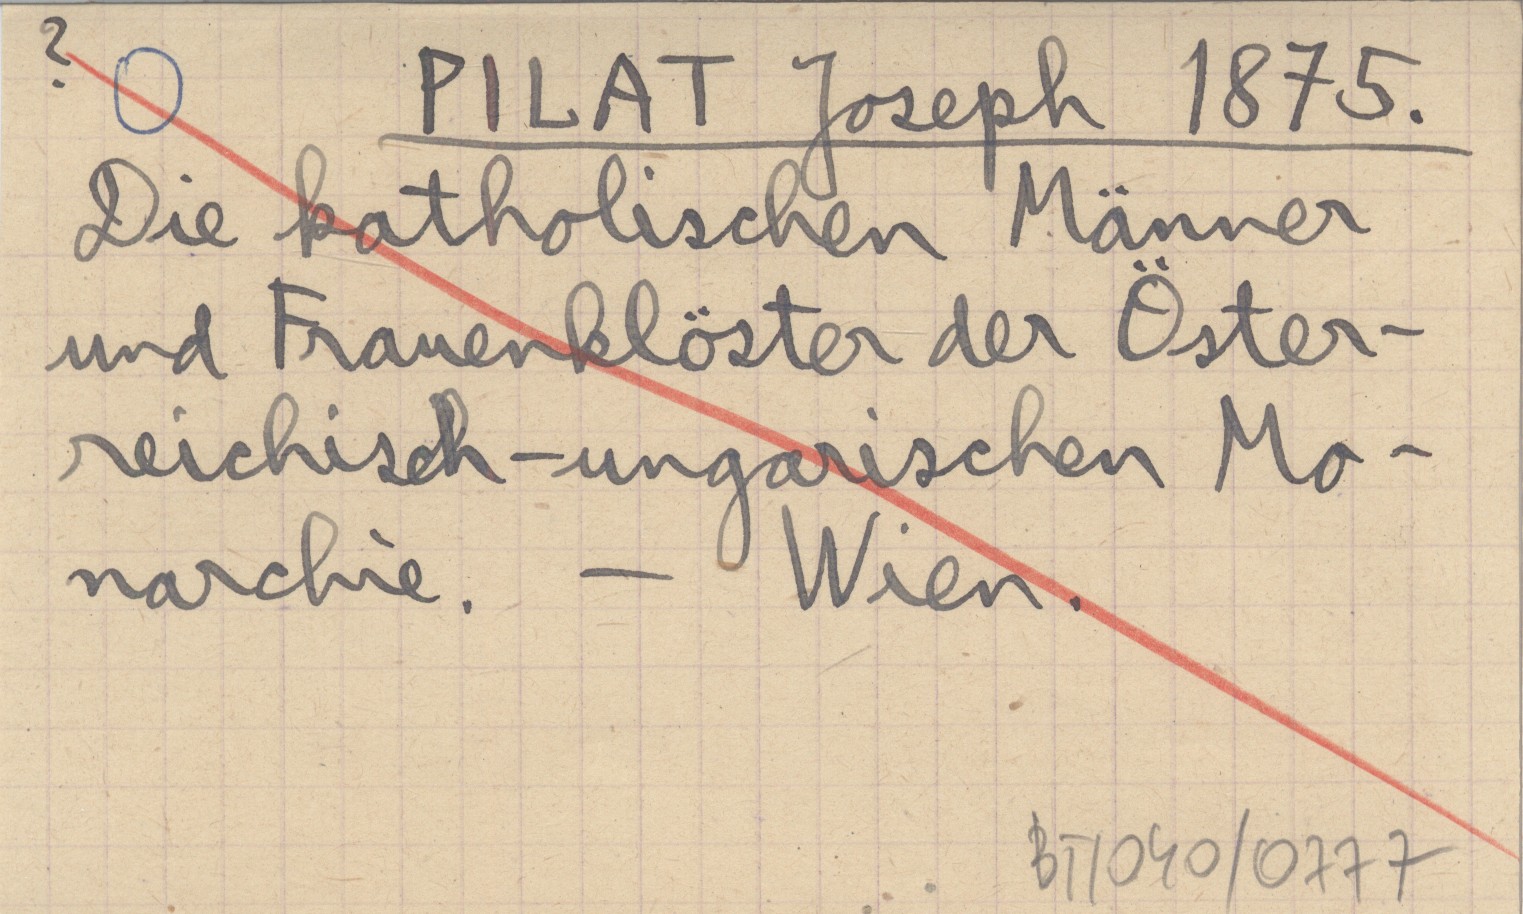 ?
O
PILAT Joseph 1875.
Die katholischen Männer
und Frauenklöster der Öster-
reichisch-ungarischen Mo-
narchie. — Wien.
BT/040/0777